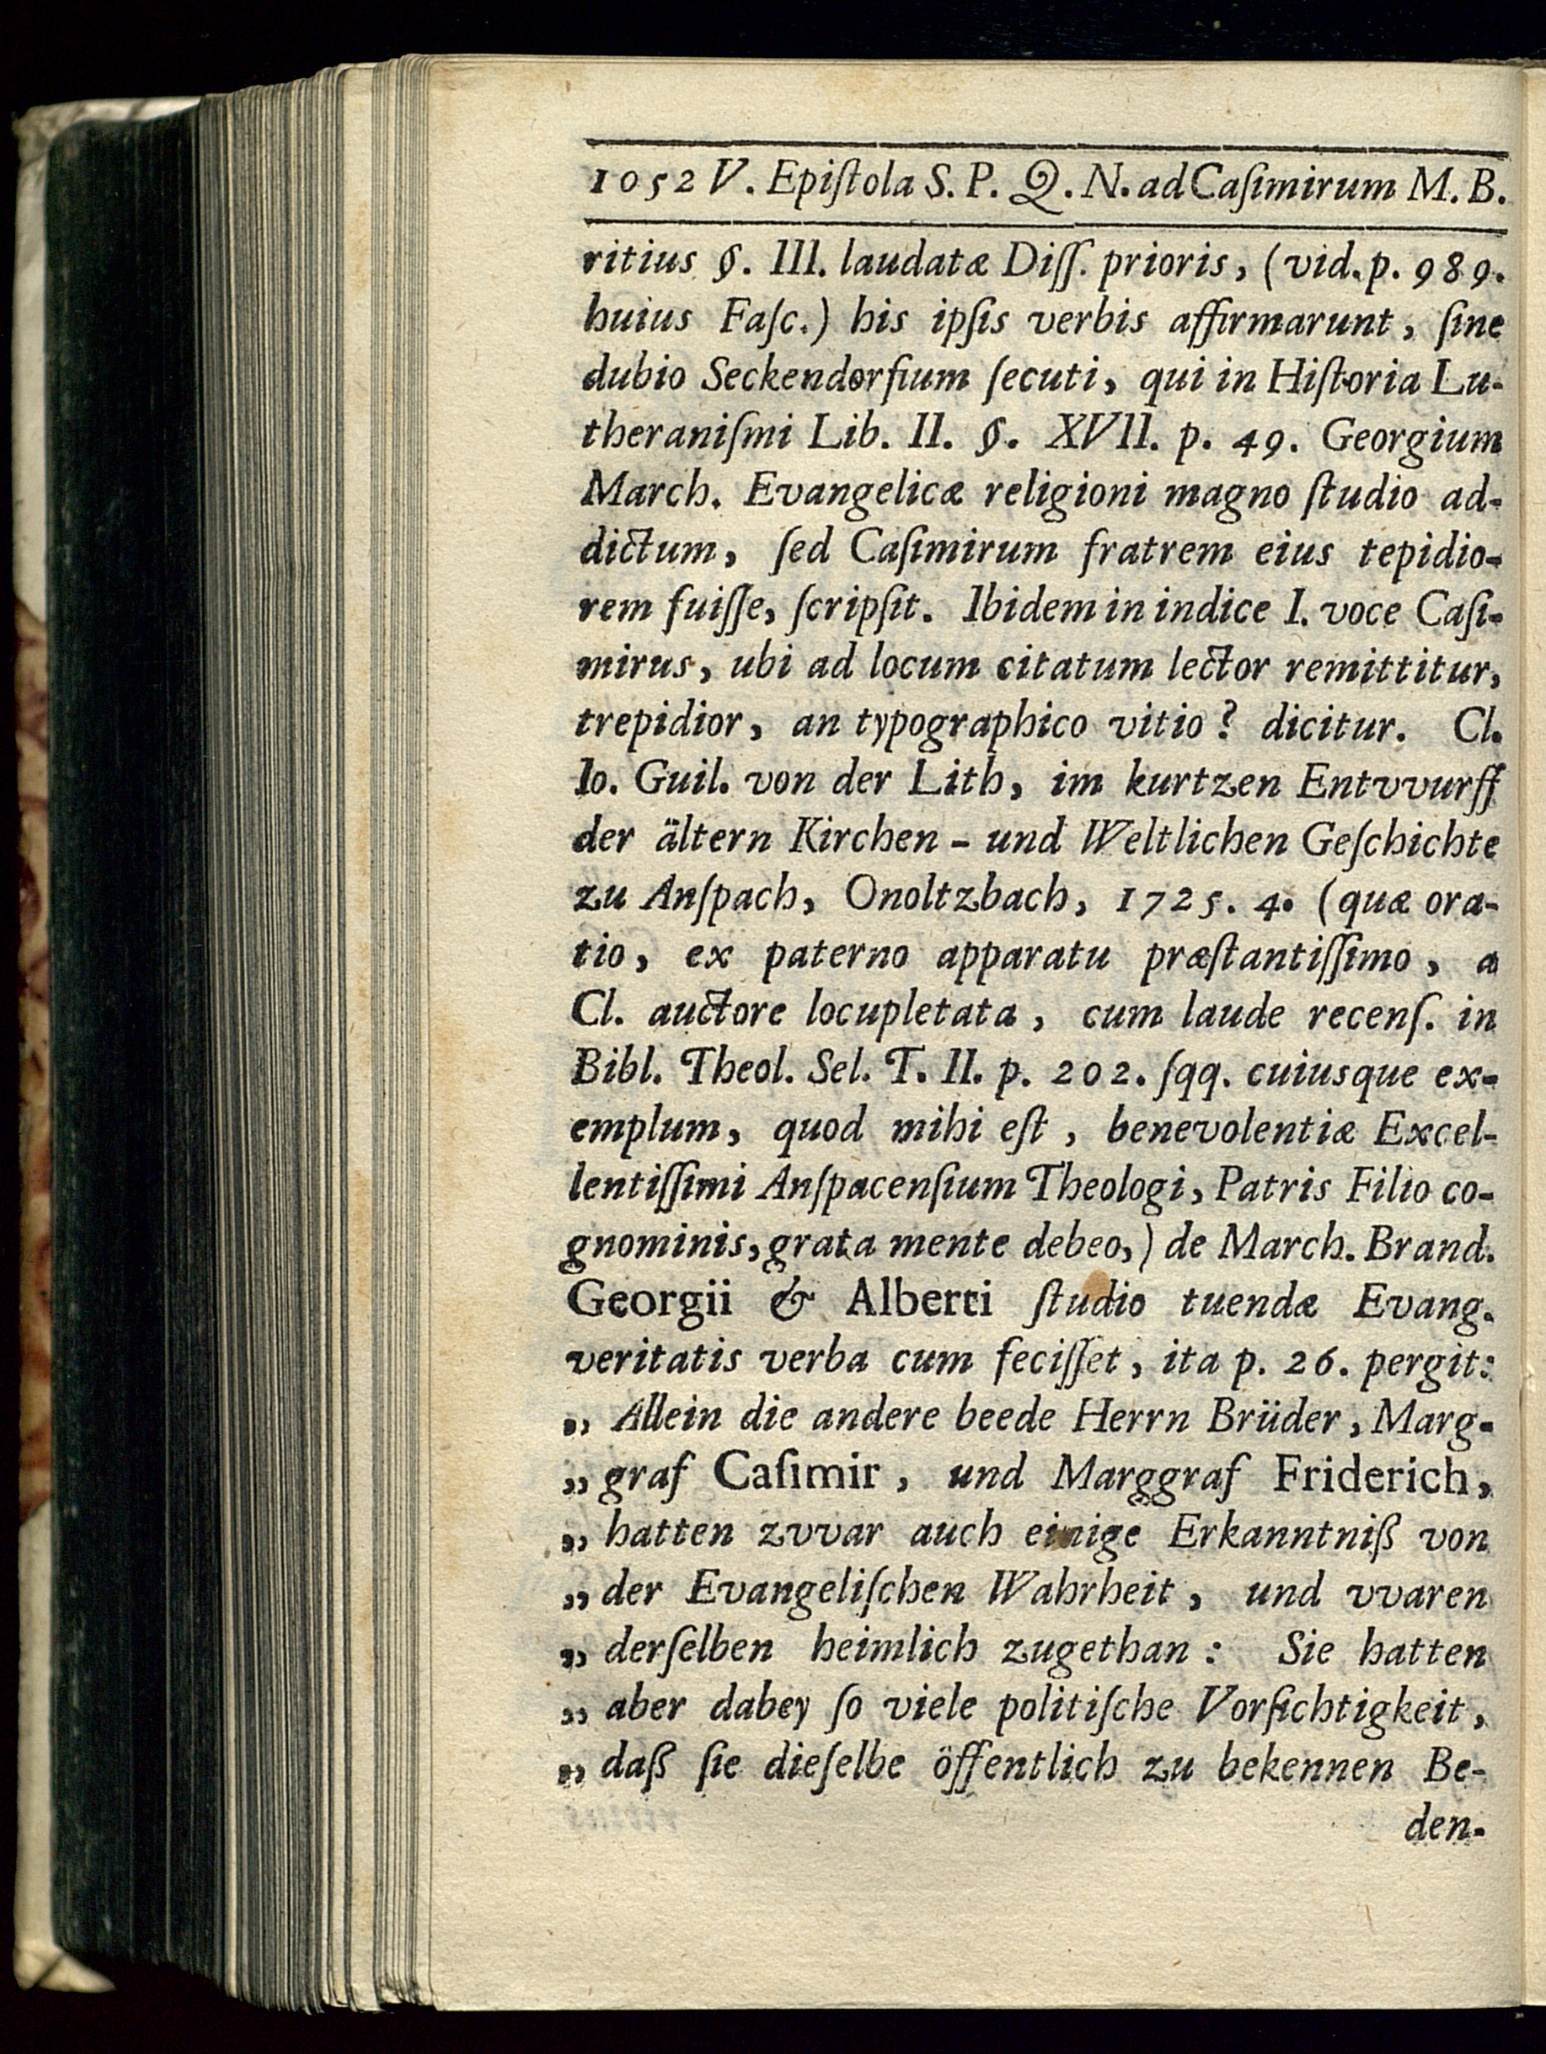 1052 V. Epiſtola S. P. Q. N. ad Caſimirum M. B.
ritius §. III. laudatæ Diſſ. prioris, (vid. p. 989.
huius Faſc.) his ipſis verbis affirmarunt, ſine
dubio Seckendorfium ſecuti, qui in Hiſtoria Lu-
theraniſmi Lib. II. §. XVII. p. 49. Georgium
March. Evangelicæ religioni magno ſtudio ad-
dictum, ſed Caſimirum fratrem eius tepidio-
rem fuiſſe, ſcripſit. Ibidem in indice I. voce Caſi-
mirus, ubi ad locum citatum lector remittitur,
trepidior, an typographico vitio? dicitur. Cl.
Io. Guil. von der Lith, im kurtzen Entvvurff
der ältern Kirchen- und Weltlichen Geſchichte
zu Anſpach, Onoltzbach, 1725. 4. (quæ ora-
tio, ex paterno apparatu præſtantiſſimo, a
Cl. auctore locupletata, cum laude recenſ. in
Bibl. Theol. Sel. T. II. p. 202. ſqq. cuiusque ex-
emplum, quod mihi eſt, benevolentiæ Excel-
lentiſſimi Anſpacenſium Theologi, Patris Filio co-
gnominis, grata mente debeo,) de March. Brand.
Georgii & Alberti ſtudio tuendæ Evang.
veritatis verba cum feciſſet, ita p. 26. pergit:
„ Allein die andere beede Herrn Brüder, Marg-
„ graf Caſimir, und Marggraf Friderich,
„ hatten zvvar auch einige Erkanntniß von
„ der Evangeliſchen Wahrheit, und vvaren
„ derſelben heimlich zugethan: Sie hatten
„ aber dabey ſo viele politiſche Vorſichtigkeit,
„ daß ſie dieſelbe öffentlich zu bekennen Be-
den-